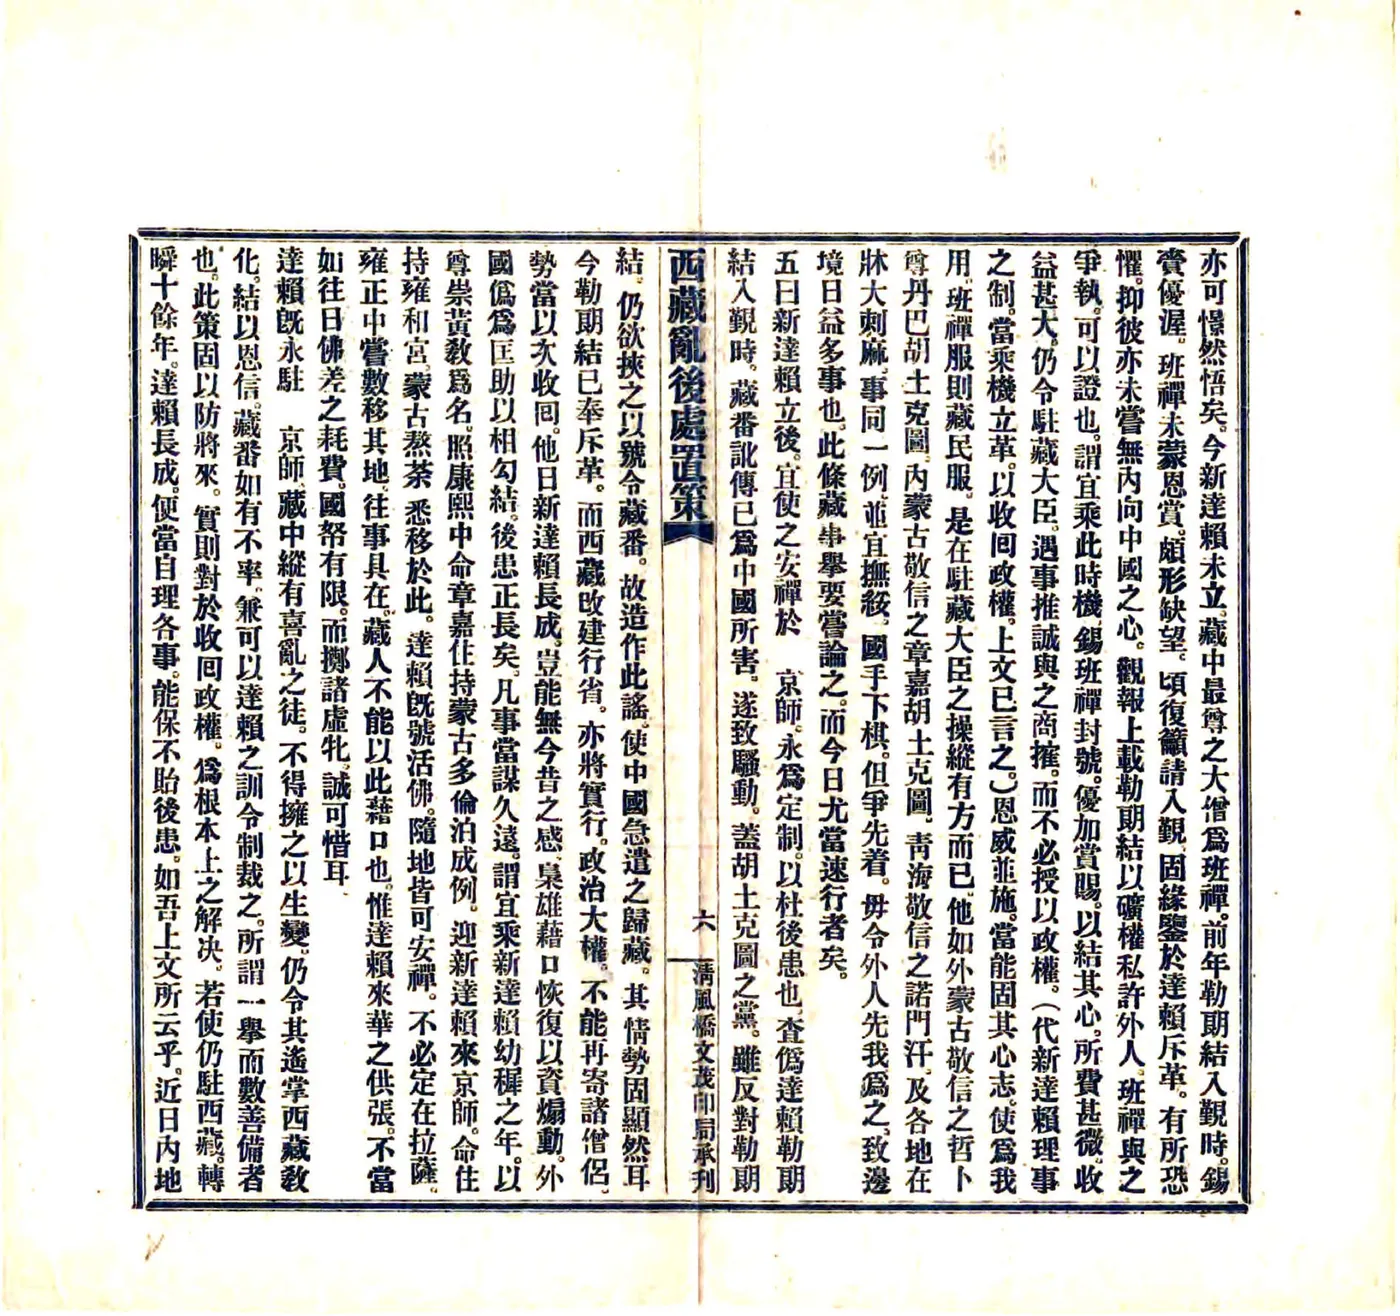 亦可憬然悟矣。今新達賴未立。藏中最尊之大僧爲班禪。前年勒期結入覲時。錫
賚優渥。班禪未蒙恩賞。頗形缺望。頃復籲請入覲。固緣鑒於達賴斥革。有所恐
懼。抑彼亦未嘗無內向中國之心。觀報上載勒期結以礦權私許外人。班禪與之
爭執。可以證也。謂宜乘此時機。錫班禪封號。優加賞賜。以結其心。所費甚微。收
益甚大。仍令駐藏大臣。遇事推誠與之商搉。而不必授以政權。（代新達賴理事
之制。當乘機立革。以收回政權。上文已言之。）恩威並施。當能固其心志。使爲我
用。班禪服則藏民服。是在駐藏大臣之操縱有方而已。他如外蒙古敬信之哲卜
尊丹巴胡土克圖。內蒙古敬信之章嘉胡土克圖。青海敬信之諾門汗。及各地在
牀大刺麻。事同一例。並宜撫綏。國手下棋。但爭先着。毋令外人先我爲之。致邊
境日益多事也。此條藏事舉要嘗論之。而今日尤當速行者矣。
五曰新達賴立後。宜使之安禪於　京師。永爲定制。以杜後患也。查僞達賴勒期
結入覲時。藏番訛傳已爲中國所害。遂致騷動。蓋胡土克圖之黨。雖反對勒期
西藏亂後處置策
六
清風橋文茂印局承刊
結。仍欲挾之以號令藏番。故造作此謠。使中國急遣之歸藏。其情勢固顯然耳
今勒期結已奉斥革。而西藏改建行省。亦將實行。政治大權。不能再寄諸僧侶。
勢當以次收回。他日新達賴長成。豈能無今昔之感。梟雄藉口恢復以資煽動。外
國僞爲匡助以相勾結。後患正長矣。凡事當謀久遠。謂宜乘新達賴幼穉之年。以
尊崇黃敎爲名。照康熙中命章嘉住持蒙古多倫泊成例。迎新達賴來京師。命住
持雍和宮。蒙古熬茶。悉移於此。達賴旣號活佛。隨地皆可安禪。不必定在拉薩。
雍正中嘗數移其地。往事具在。藏人不能以此藉口也。惟達賴來華之供張。不當
如往日佛差之耗費。國帑有限。而擲諸虛牝。誠可惜耳
達賴旣永駐　京師。藏中縱有喜亂之徒。不得擁之以生變。仍令其遙掌西藏敎
化。結以恩信。藏番如有不率。兼可以達賴之訓令制裁之。所謂一舉而數善備者
也。此策固以防將來。實則對於收回政權。爲根本上之解決。若使仍駐西藏。轉
瞬十餘年。達賴長成。便當自理各事。能保不貽後患。如吾上文所云乎。近日內地